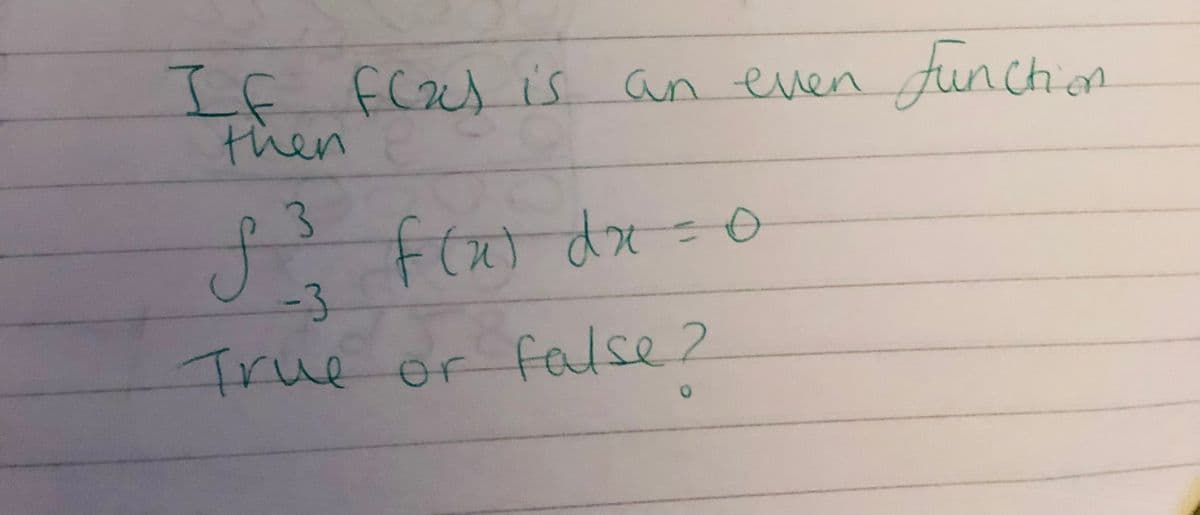 If f(x) is an even function
then
∫ 3 -3 f(x) dx = 0
True or false?